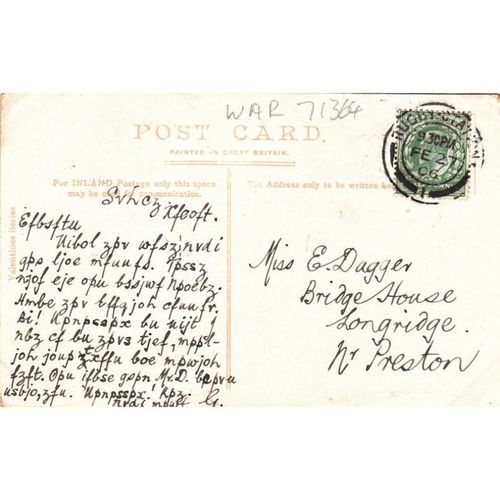 WAR 71364
POST CARD.
PRINTED IN GREAT BRITAIN.
For INLAND Postage only this space may be used for communication.
The Address only to be written
Valentines Series
RUGBY STATION
FE 21
06
Svhcz
Xfeoft.
Efbsftu
Uibol zpv wfsz nvdi
gps ljoe mfuufs. Tpssz
ngof eje opu bssjwf Npoebz.
zpv bffgjoh cfuufr.
Bi! Upnpsspx bu uijt J
nbz cf bu zpvs tjef, mppl-
joh joup txffu boe mpwjoh
fzft. Opu ifbse gspn Mr. D. bcpvu
usbjo, zfu. Upnpsspx. Kpz.
nvdi
Miss E. Dagger
Bridge House
Longridge.
Nr Preston